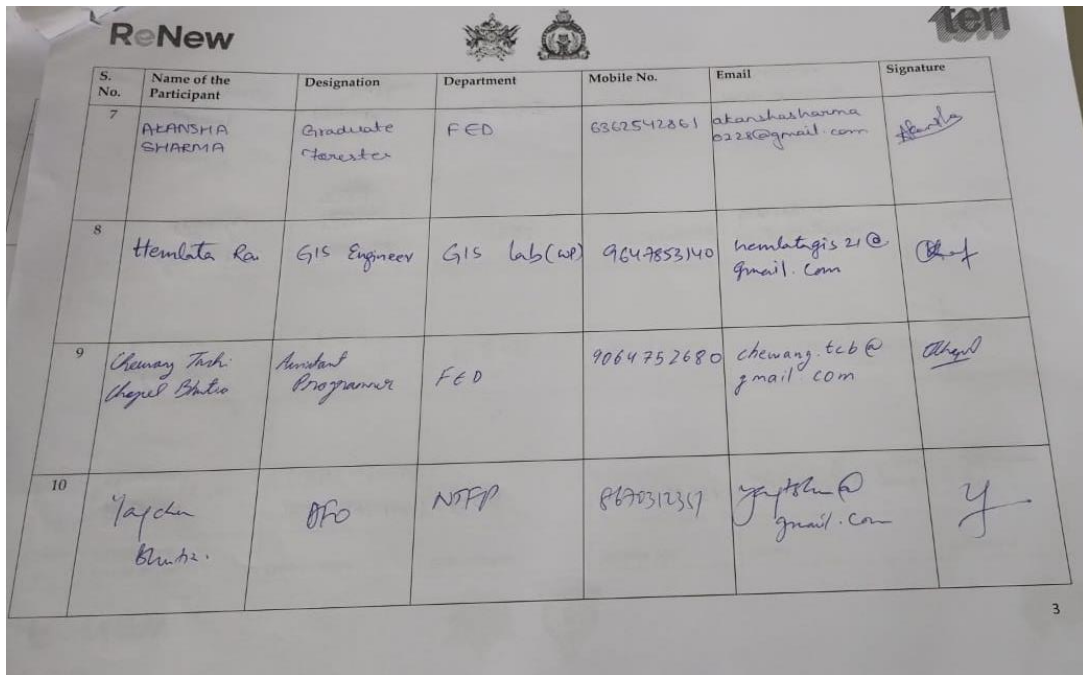 ReNew
teri
S. No. Name of the Participant Designation Department Mobile No. Email Signature
7 AKANSHA SHARMA Graduate Forester FED 6362542861 akanshasharma0228@gmail.com
8 Hemlata Rai GIS Engineer GIS Lab (WP) 9647853140 hemlatagis21@gmail.com
9 Chewang Tashi Chopel Bhutia Assistant Programmer FED 9064752680 chewang.tcb@gmail.com
10 Bhutia. DFO NTFP @gmail.com
3